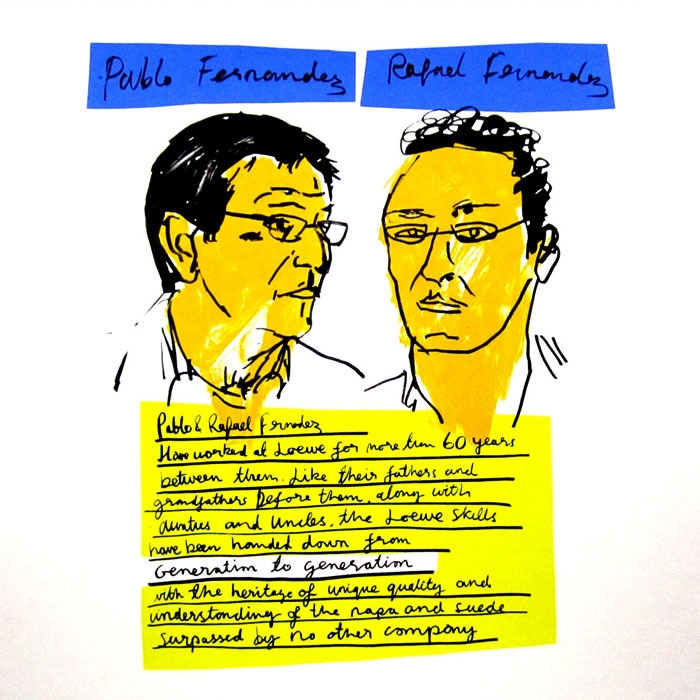 Pablo Fernandez
Rafael Fernandez
Pablo & Rafael Fernandez
Have worked at Loewe for more than 60 years
between them. Like their fathers and
grandfathers before them, along with
aunties and uncles, the Loewe skills
have been handed down from
Generation to generation
with the heritage of unique quality and
understanding of the napa and suede
surpassed by no other company